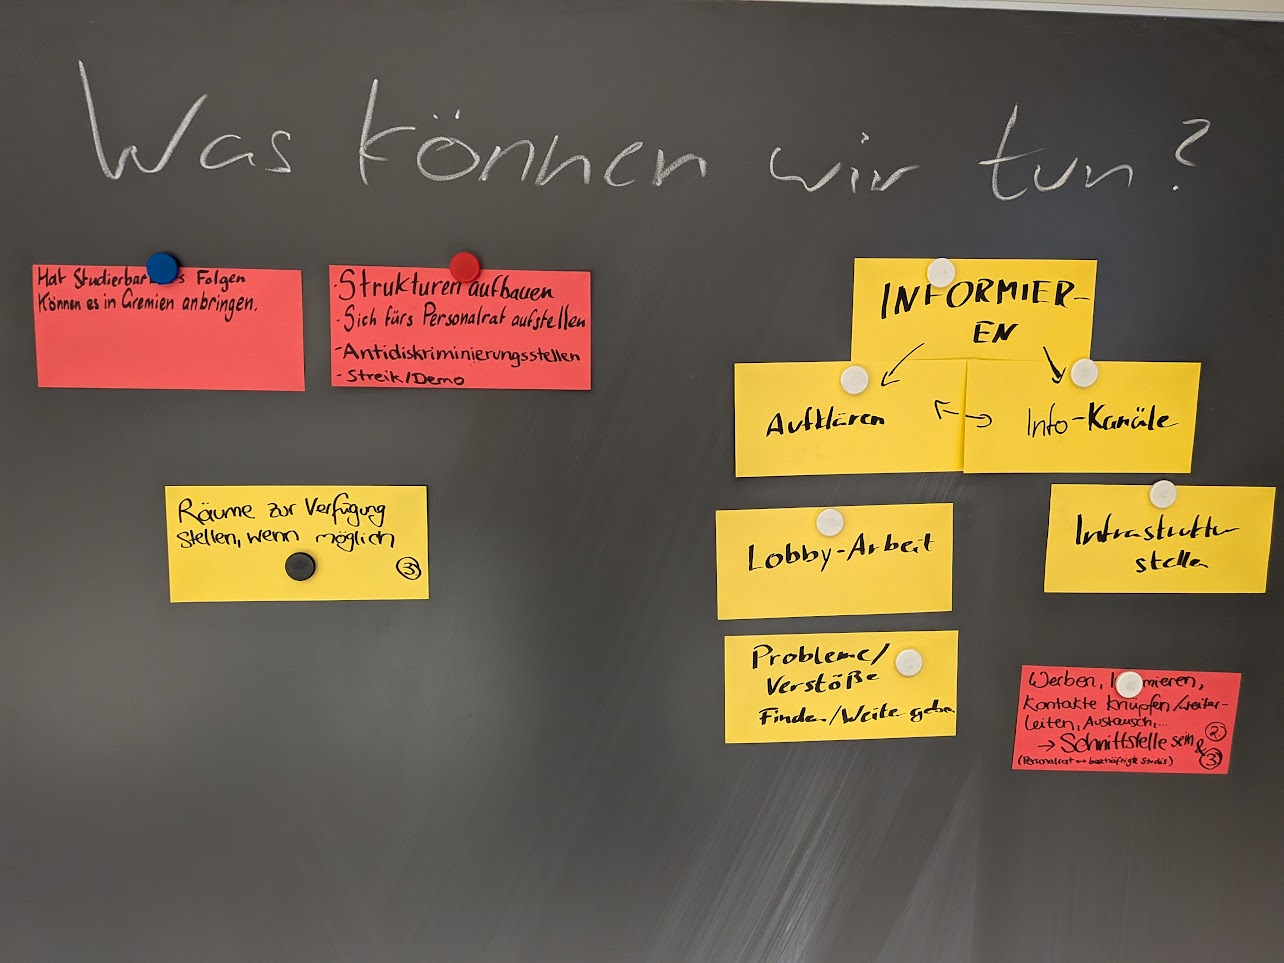 Was können wir tun?
Hat Folgen
Können es in Gremien anbringen.
·Strukturen aufbauen
·Sich fürs Personalrat aufstellen
-Antidiskriminierungsstellen
-Streik/Demo
Räume zur Verfügung
stellen, wenn möglich
③
INFORMIER-
EN
Aufklären
Info-Kanäle
Lobby-Arbeit
Infrastruktur
stellen
Probleme/
Verstöße
Finden/Weitergeben
Werben,
Kontakte knüpfen/weiter-
leiten, Austausch,...
→ Schnittstelle sein ② & ③
(Personalrat ↔ beschäftigte Studis)